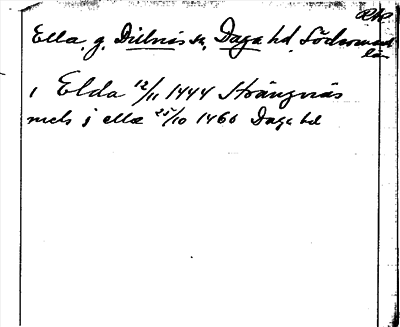 Ella, g. Dillnäs sn, Daga hd, Södermanl
län
i Elda 12/11 1444 Strängnäs
nels j ella 25/10 1466 Daga hd